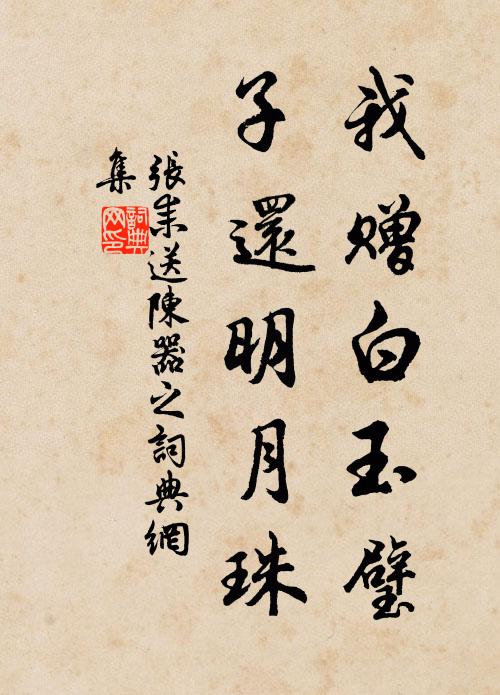 我赠白玉璧
子還明月珠
張耒送陳器之詞典網
集
詞典
网印